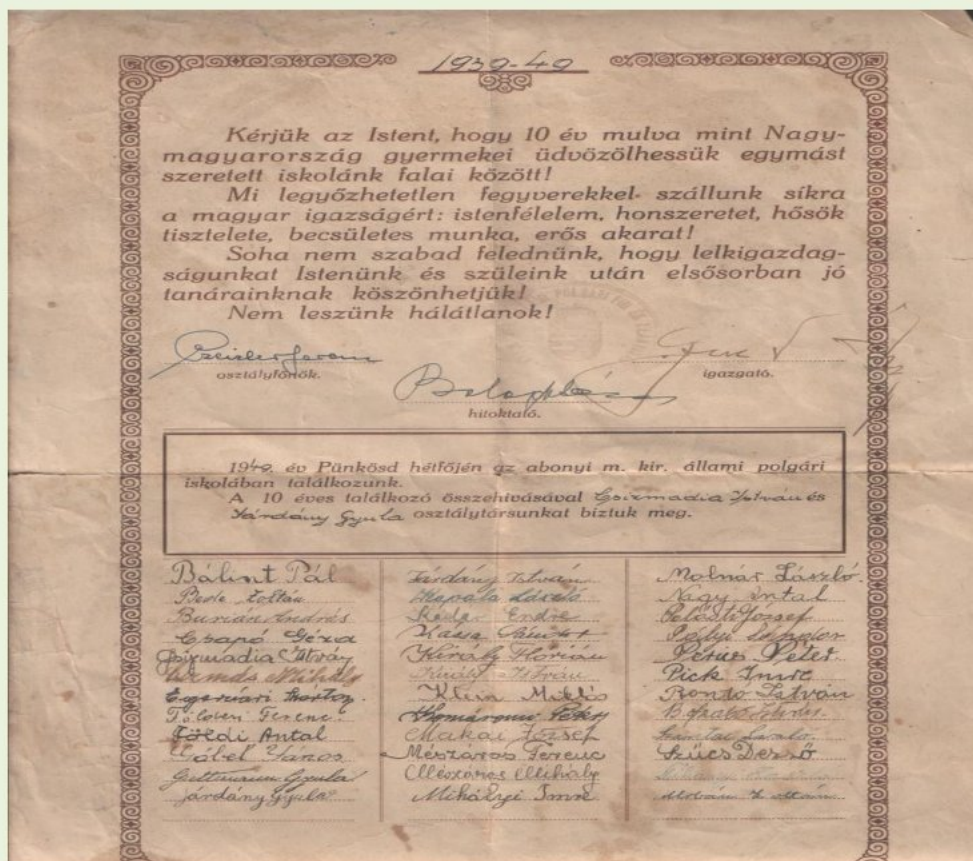 1939-40
Kérjük az Istent, hogy 10 év mulva mint Nagy-
magyarország gyermekei üdvözölhessük egymást
szeretett iskolánk falai között!
Mi legyőzhetetlen fegyverekkel szállunk síkra
a magyar igazságért: istenfélelem, honszeretet, hősök
tisztelete, becsületes munka, erős akarat!
Soha nem szabad felednünk, hogy lelkigazdag-
ságunkat Istenünk és szüleink után elsősorban jó
tanárainknak köszönhetjük!
Nem leszünk hálátlanok!
Ferenc
osztályfőnök.
igazgató.
hitoktató.
1949. év Pünkösd hétfőjén az abonyi m. kir. állami polgári
iskolában találkozunk.
A 10 éves találkozó összehívásával Csizmadia István és
Járdány Gyula osztálytársunkat biztuk meg.
Bálint Pál
Bede Zoltán
Burián András
Csapó Géza
Csizmadia István
Mihály
Ferenc
Földi Antal
Gábel János
Guttmann Gyula
Járdány Gyula
Járdány István
Kapala László
Kádár Endre
Kassa Sándor
Király Flórián
Király István
Klein Miklós
Komáromi Péter
Makai József
Mészáros Ferenc
Mészáros Mihály
Mihályi Imre
Molnár László
Nagy Antal
József
Pályi Sándor
Péter
Pick Imre
Rondó István
B. Szabó
Szántai László
Szűcs Dezső
Urbán Zoltán